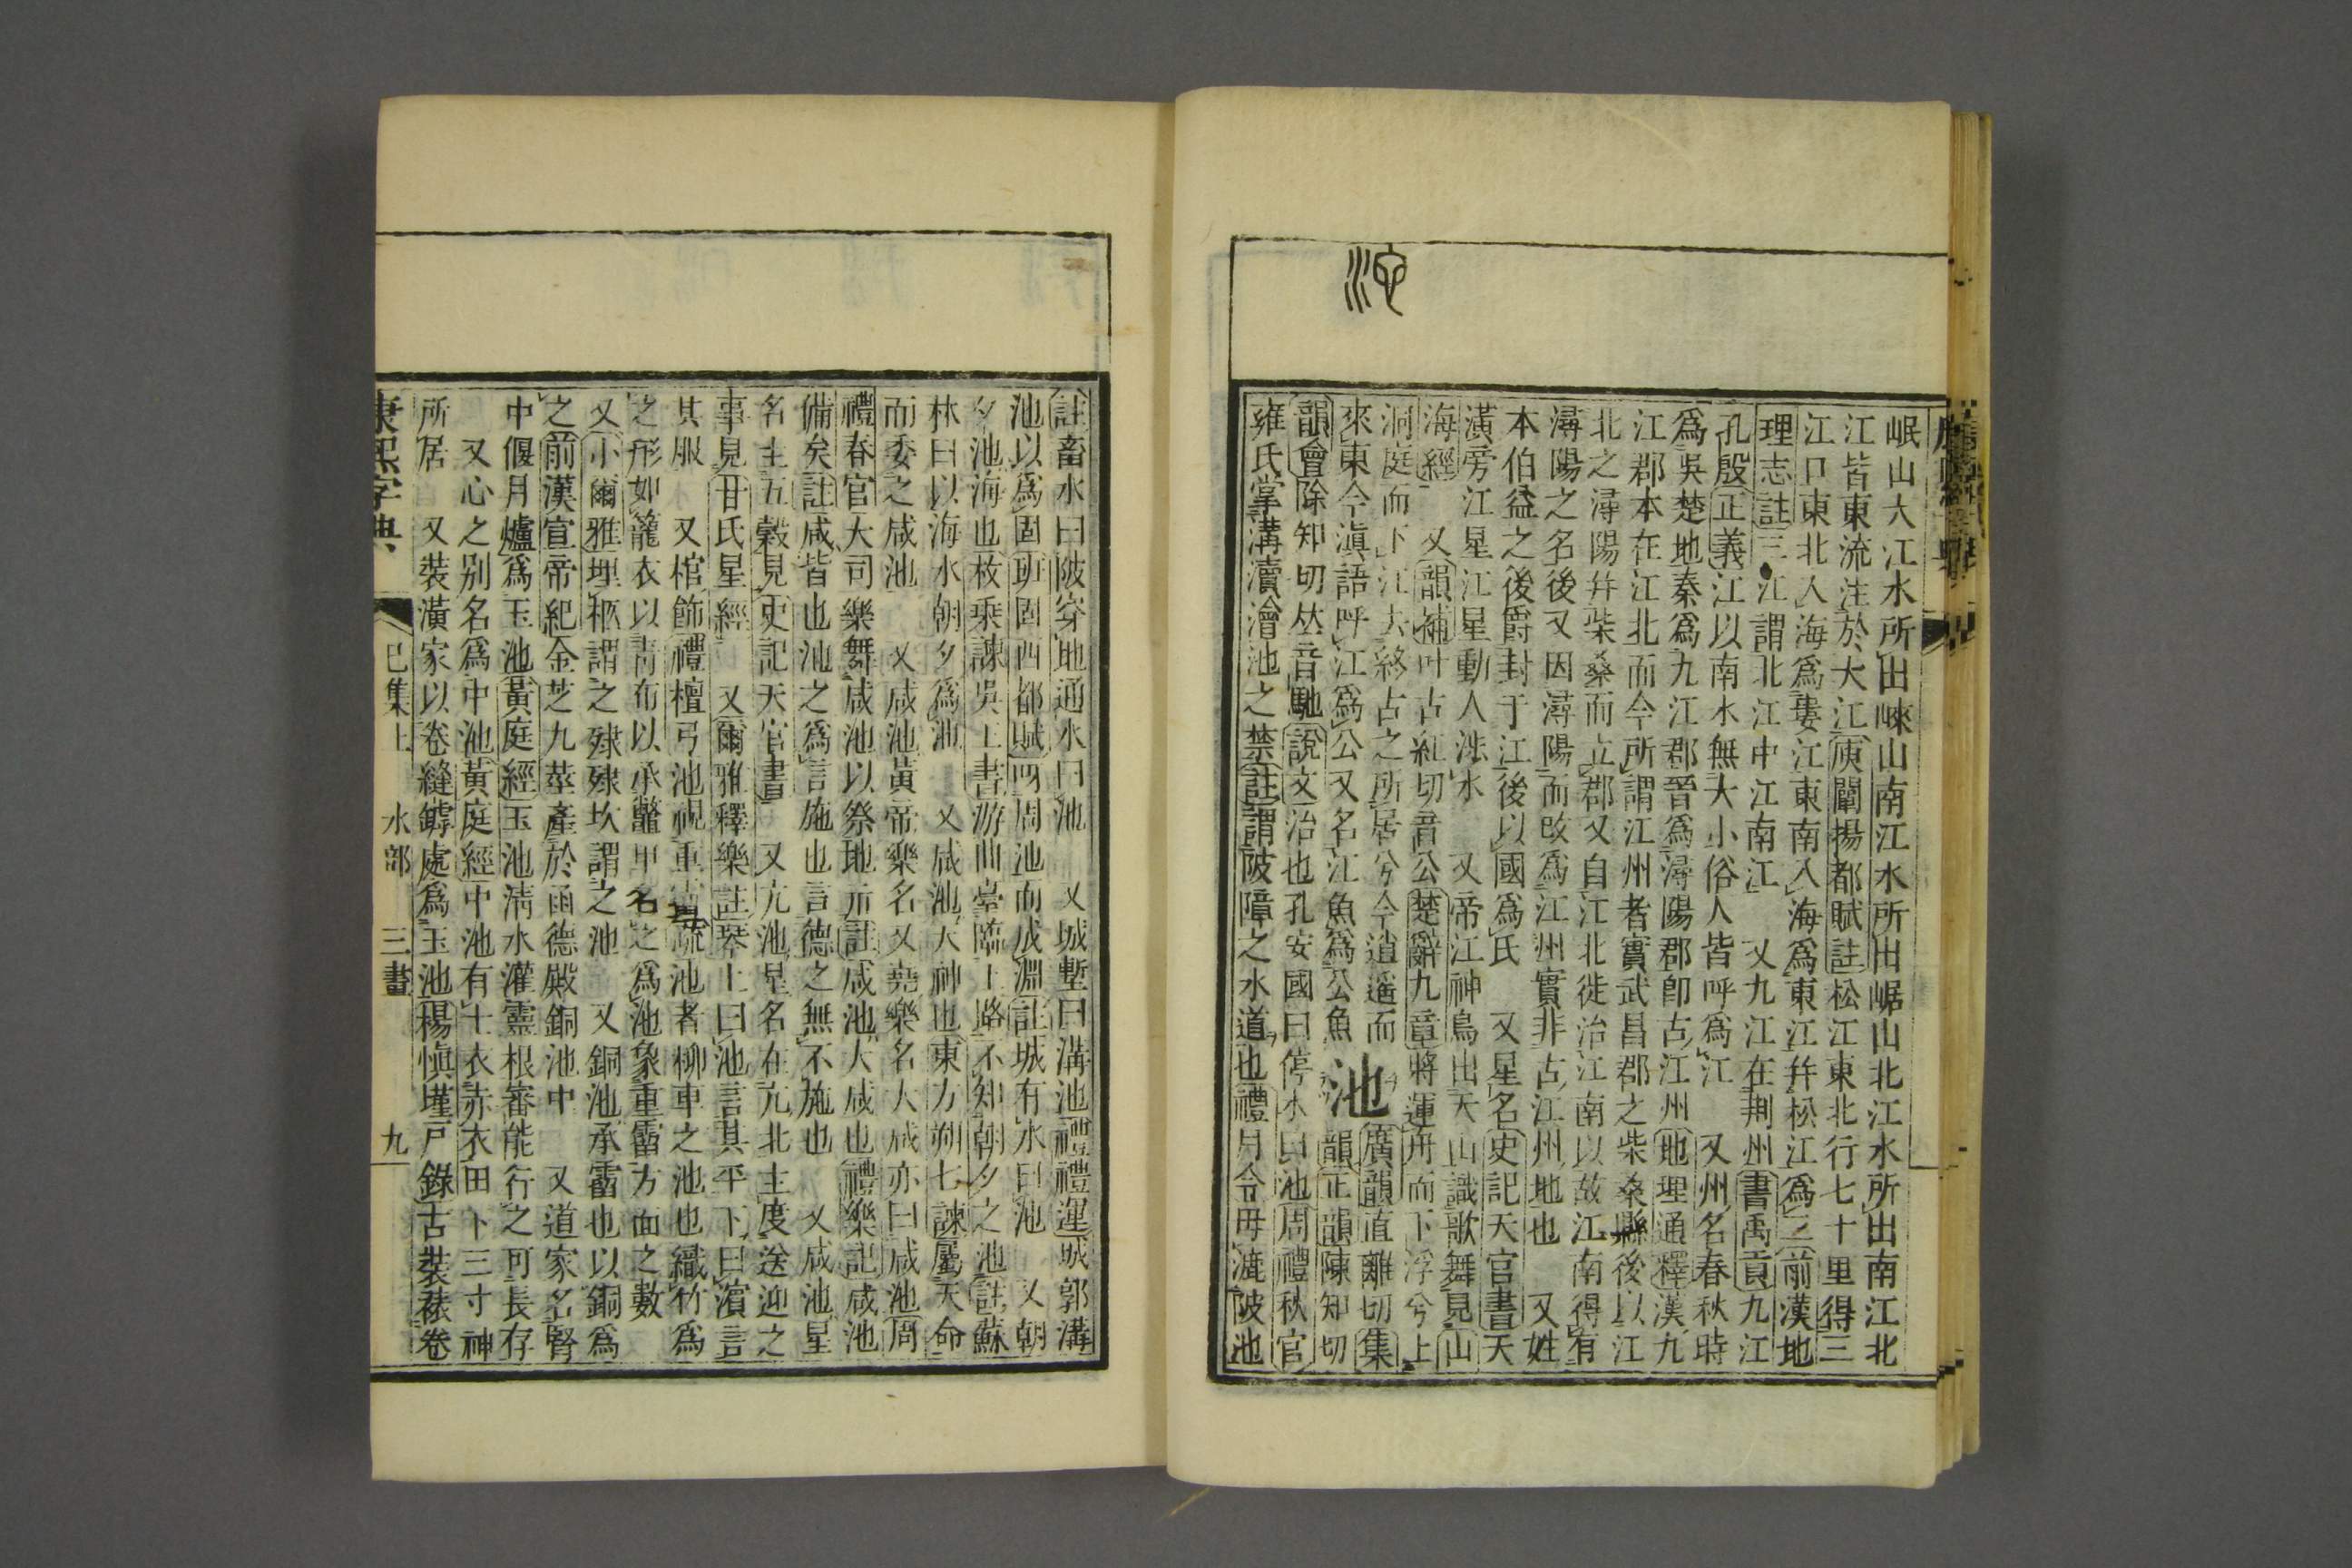 岷山大江水所出崍山南江水所出崌山北江水所出南江北
江皆東流注於大江庾闡揚都賦註松江東北行七十里得三
江口東北入海爲婁江東南入海爲東江幷松江爲三前漢地
理志註三江謂北江中江南江 又九江在荆州書禹貢九江
孔殷正義江以南水無大小俗人皆呼爲江 又州名春秋時
爲吳楚地秦爲九江郡晉爲潯陽郡卽古江州地理通釋漢九
江郡本在江北而今所謂江州者實武昌郡之柴桑縣後以江
北之潯陽幷柴桑而立郡又自江北徙治江南以故江南得有
潯陽之名後又因潯陽而改爲江州實非古江州地也 又姓
本伯益之後爵封于江後以國爲氏 又星名史記天官書天
潢旁江星江星動人涉水 又帝江神鳥出天山識歌舞見山
海經 又韻補叶古紅切音公楚辭九章將運舟而下浮兮上
洞庭而下江去終古之所居兮今逍遙而
來東今滇語呼江爲公又名江魚爲公魚
池 廣韻直離切集
韻正韻陳知切
韻會除知切𠀤音馳說文治也孔安國曰停水曰池周禮秋官
雍氏掌溝瀆澮池之禁註謂陂障之水道也禮月令毋漉陂池
註畜水曰陂穿地通水曰池 又城塹曰溝池禮禮運城郭溝
池以爲固班固西都賦呬周池而成淵註城有水曰池 又朝
夕池海也枚乗諫吳王書游曲臺臨上路不知朝夕之池註蘇
林曰以海水朝夕爲池 又咸池天神也東方朔七諫屬天命
而委之咸池 又咸池黃帝樂名又堯樂名大咸亦曰咸池周
禮春官大司樂舞咸池以祭地示註咸池大咸也禮樂記咸池
備矣註咸皆也池之爲言施也言德之無不施也 又咸池星
名主五穀見史記天官書 又亢池星名在亢北主度送迎之
事見甘氏星經 又爾雅釋樂註琴上曰池言其平下曰濱言
其服 又棺飾禮檀弓池視重霤疏池者柳車之池也織竹爲
之形如籠衣以靑布以承鼈甲名之爲池象重霤方面之數
又小爾雅埋柩謂之殔殔坎謂之池 又銅池承霤也以銅爲
之前漢宣帝紀金芝九莖產於函德殿銅池中 又道家名腎
中偃月爐爲玉池黃庭經玉池淸水灌靈根審能行之可長存
又心之别名爲中池黃庭經中池有士衣赤衣田下三寸神
所居 又裝潢家以卷縫罅處爲玉池楊愼墐戸錄古裝裱卷
康熙字典 巳集上 水部 三畫 九